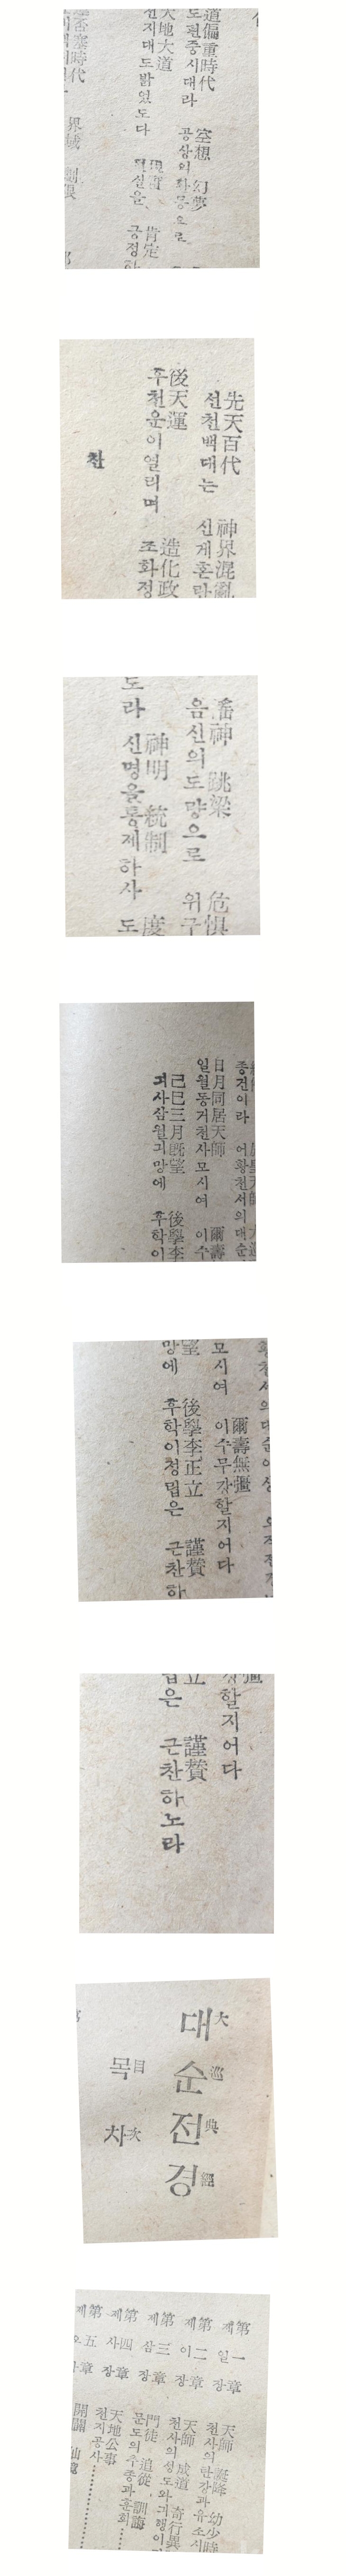 道偏重時代
도편중시대라
空想 幻夢
공상의환몽으로
天地大道
천지대도밝았도다
現實 肯定
현실을 긍정하
否塞時代
界域
先天百代
선천백대는
神界混亂
신계혼란
後天運
후천운이열리며
造化政
조화정
찬
음신의도량으로
跳梁
危惧
위구
도라
神明 統制
신명을통제하사
度
도
종건이라 어황천서의대순
日月同居天師 爾壽
일월동거천사모시여 이수
己巳三月旣望 後學李
긔사삼월긔망에 후학이
모시여
爾壽無疆
이수무강할지어다
望
망에
後學李正立 謹贊
후학이정립은 근찬하
할지어다
立
립은
謹贊
근찬하노라
大巡典經
대순전경
目次
목차
第一章
제일장
天師 誕降 幼少時
천사의탄강과유소시
第二章
제이장
天師 成道 奇行異
천사의성도와긔행이
第三章
제삼장
門徒 追從 訓誨
문도의추종과훈회
第四章
제사장
天地公事
천지공사
第五章
開闢